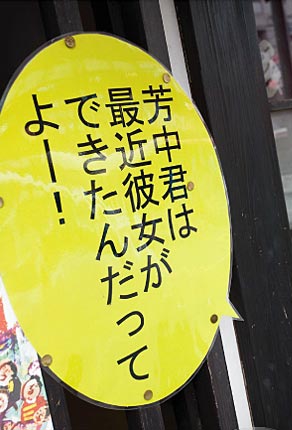 芳中君は
最近彼女が
できたんだって
よー！